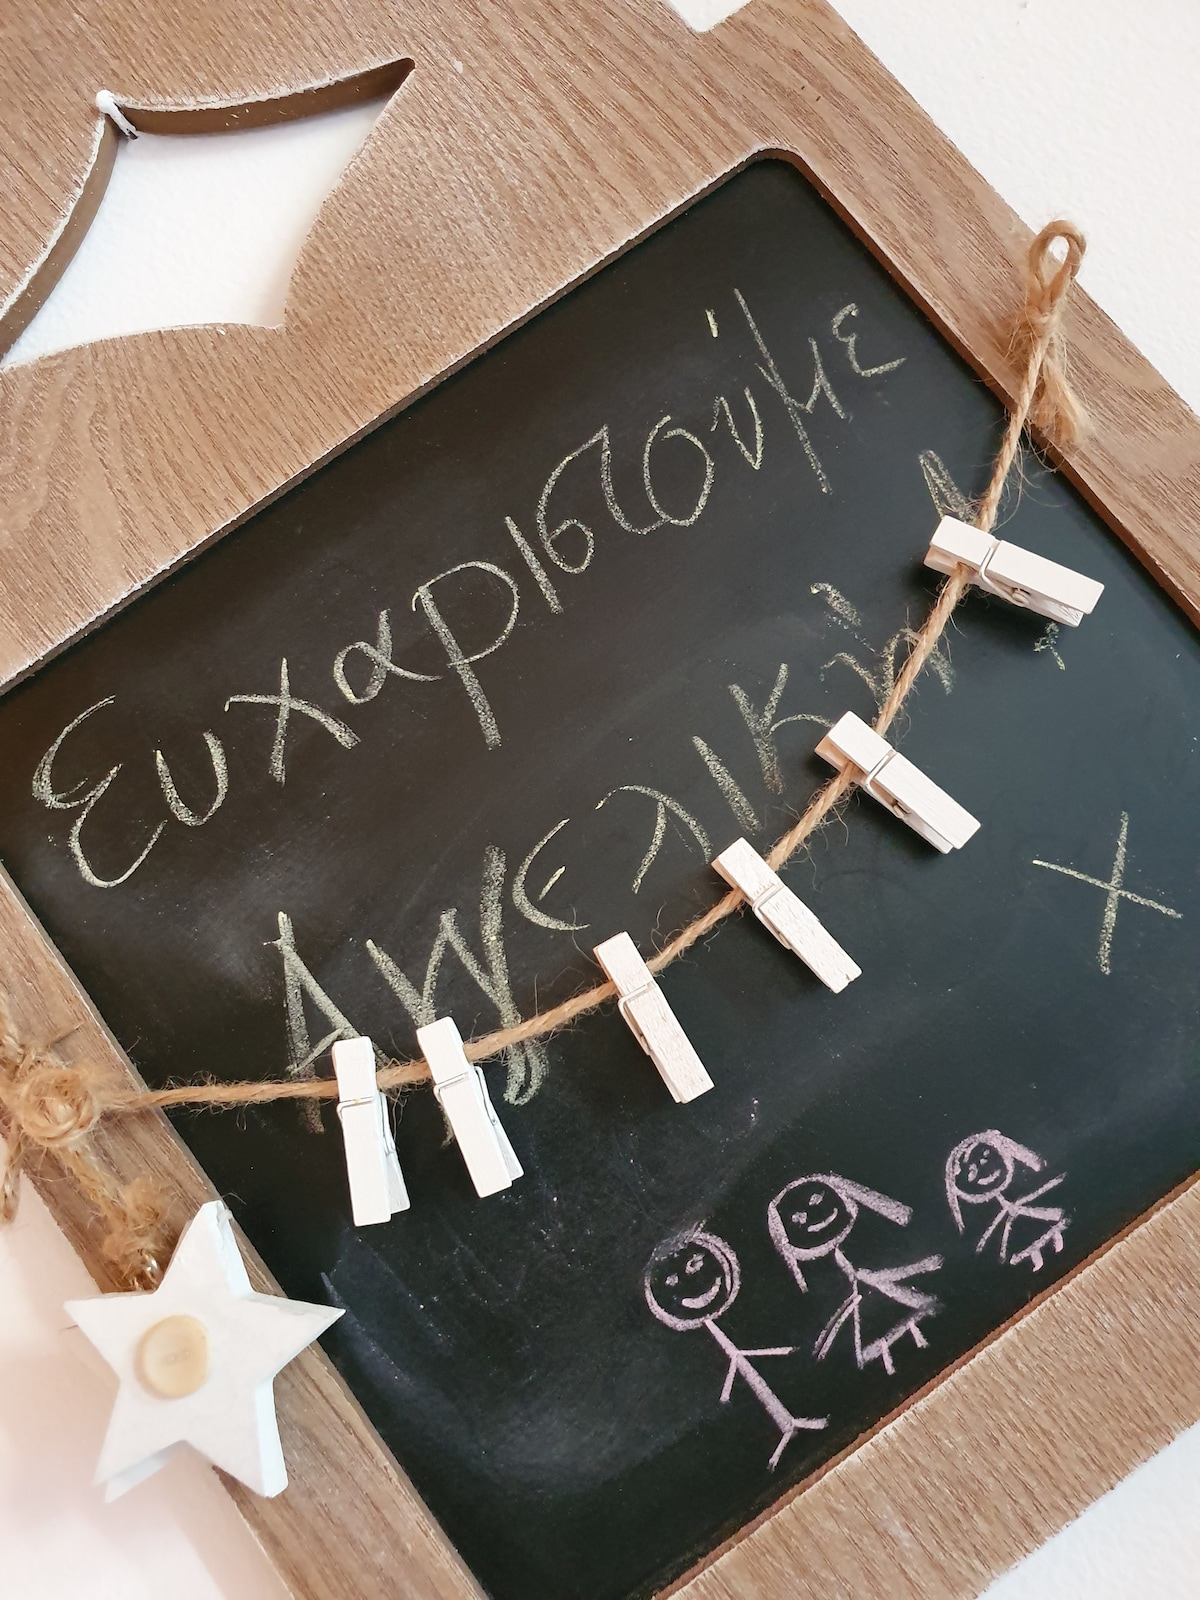 Ευχαριστούμε
Αγγελική
X